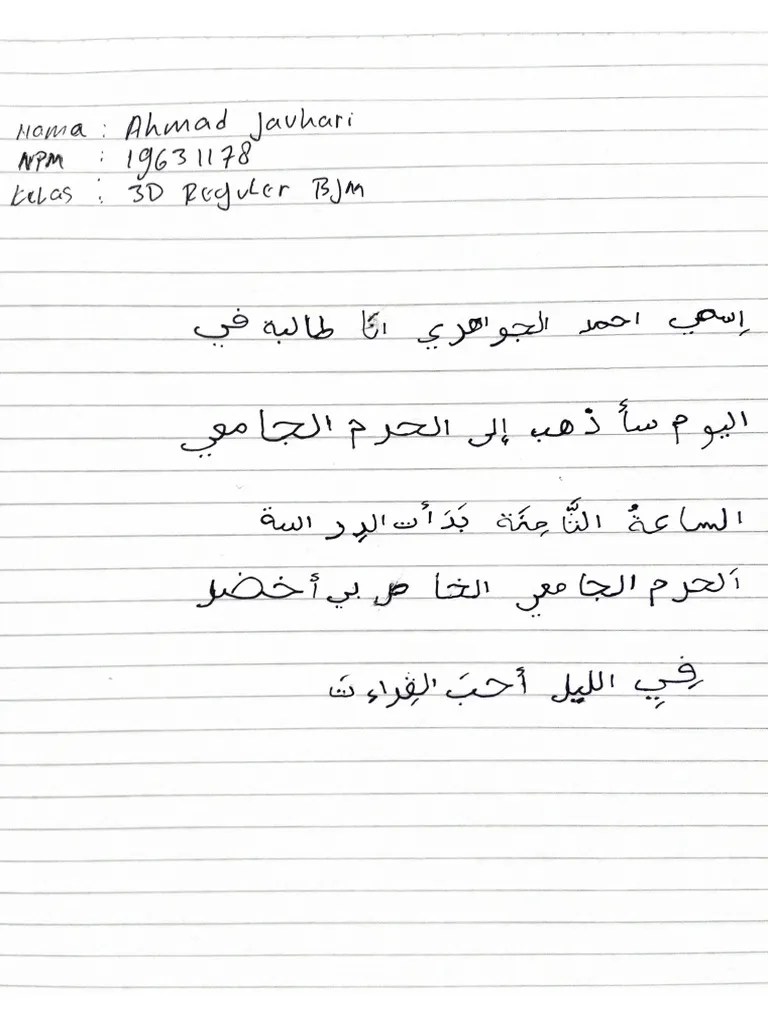 Nama : Ahmad Javhari
NPM : 19631178
Kelas : 3D Reguler BJM
إسمي احمد الجواهري انَا طالبة في
اليوم سأ ذهب إلى الحرم الجا معي
الساعةُ الثَّا مِنَة بَدَ أت الدِر اسة
اَلحرم الجا معي الخا ص بي أخضر
فِي الليل أحبَ القِراءتَ